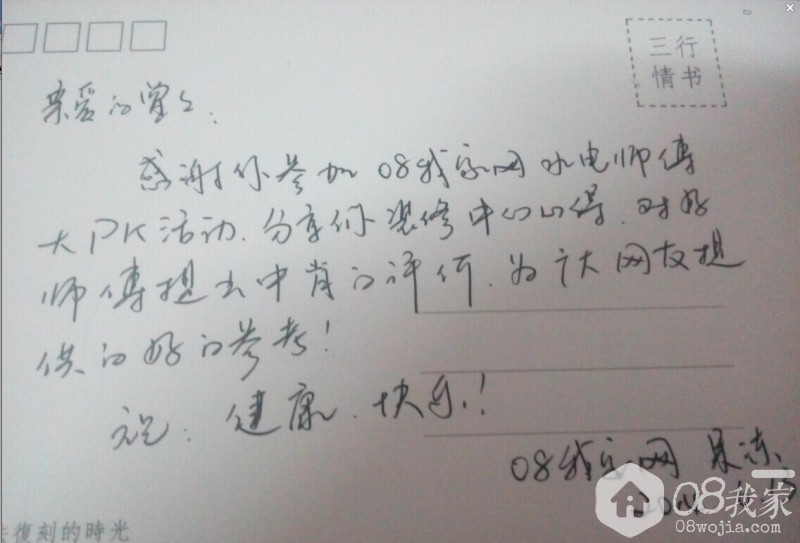 三行
情书
亲爱的曾
感谢你参加08我家网水电师傅
大PK活动.分享你装修中的心得.对好
师傅提出中肯的评价.为广大网友提
供的好的参考!
祝:健康.快乐!
08我家网 果冻
08我家
08wojia.com
復刻的時光